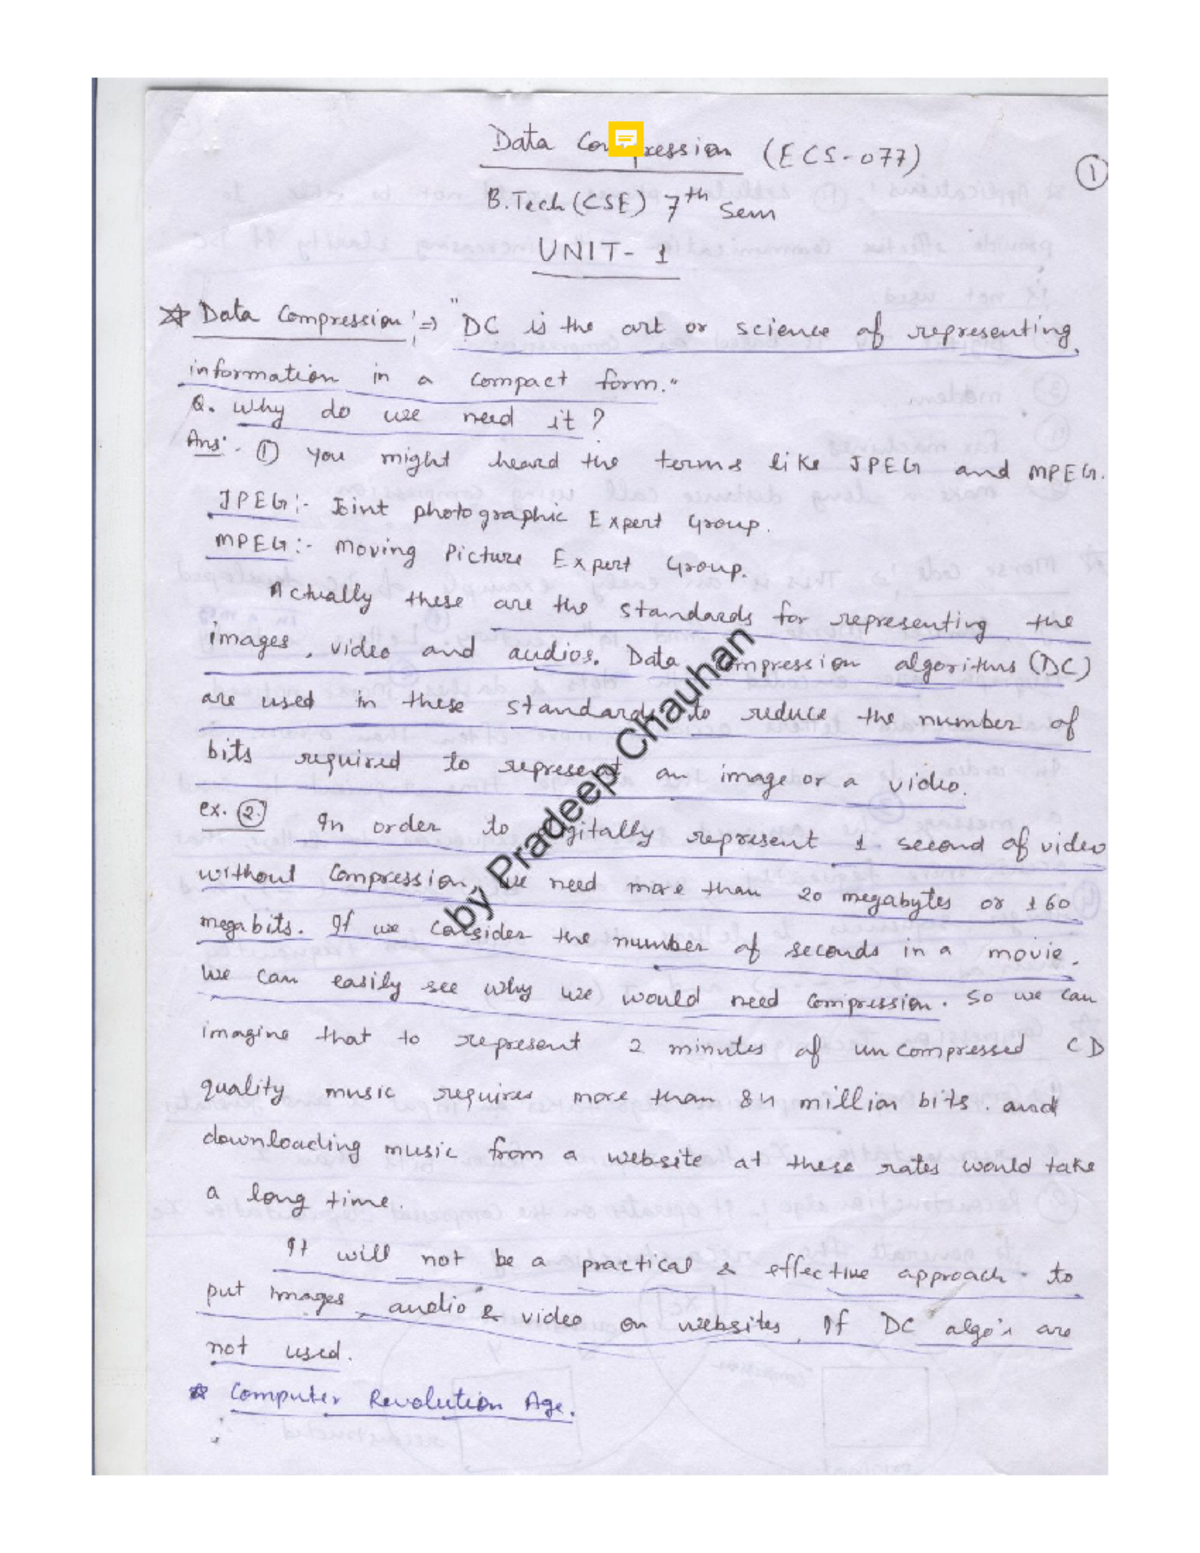 Data Compression (ECS-077)
1
B.Tech (CSE) 7th Sem
UNIT- 1
☆ Data Compression :⇒ "DC is the art or science of representing
information in a compact form."
Q. Why do we need it?
Ans:- ① You might heard the terms like JPEG and MPEG.
JPEG:- Joint photographic Expert Group.
MPEG:- Moving Picture Expert Group.
Actually these are the standards for representing the
images, video and audios. Data Compression algorithms (DC)
are used in these standards to reduce the number of
bits required to represent an image or a video.
ex. ②. In order to digitally represent 1 second of video
without Compression, we need more than 20 megabytes or 160
megabits. If we consider the number of seconds in a movie.
we can easily see why we would need compression. So we can
imagine that to represent 2 minutes of uncompressed CD
quality music requires more than 84 million bits. and
downloading music from a website at these rates would take
a long time.
It will not be a practical & effective approach to
put images, audio & video on websites, If DC algo's are
not used.
☆ Computer Revolution Age.
by Pradeep Chauhan